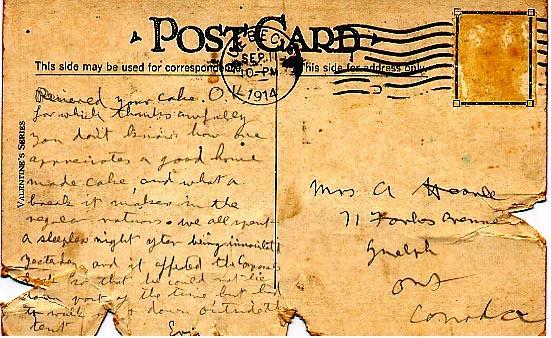 POST CARD
This side may be used for correspondence
This side for address only.
SEP 11
10-PM
1914
VALENTINE'S SERIES
Received your cake. O.K.
for which thanks awfully
you don't know how one
appreciates a good home
made cake, and what a
break it makes in the
regular rations. we all spent
a sleepless night after being innoculated
yesterday and it affected the Corporal's
so that he could not lie
down part of the time but had
to walk up & down outside the
tent
Mrs A
71 Forbes Avenue
Guelph
Ont
Canada